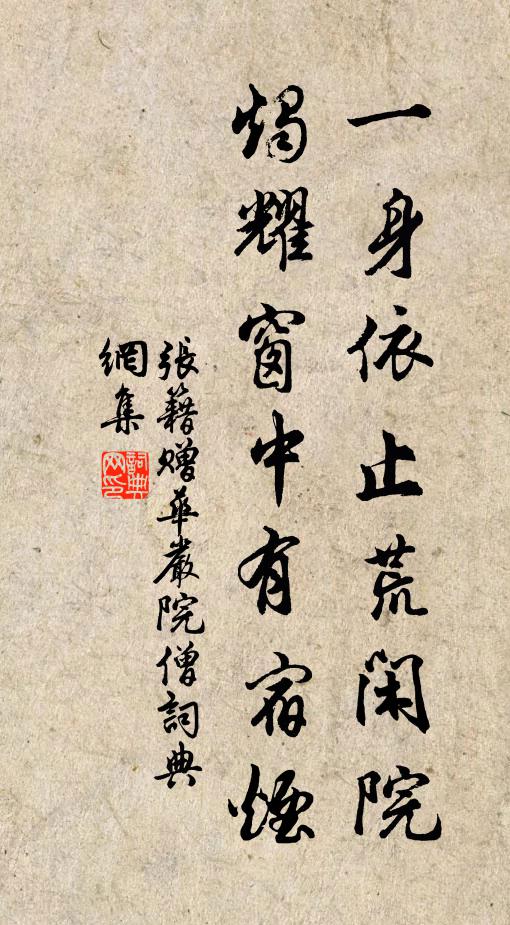 一身依止荒閑院
燭耀窗中有宿煙
張籍贈華嚴院僧詞典
網集
詞典網印